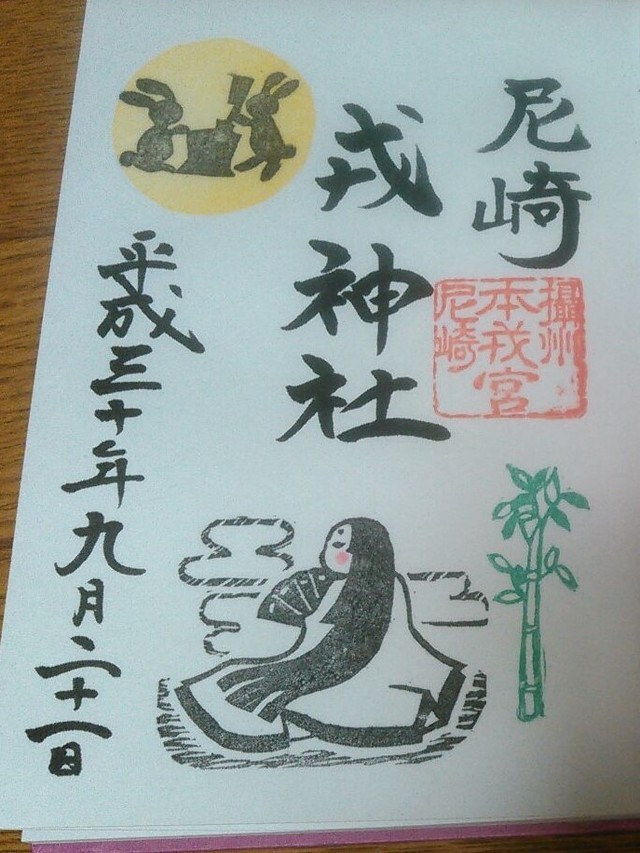 尼崎
戎神社
攝州
本戎宮
尼崎
平成三十年九月二十一日